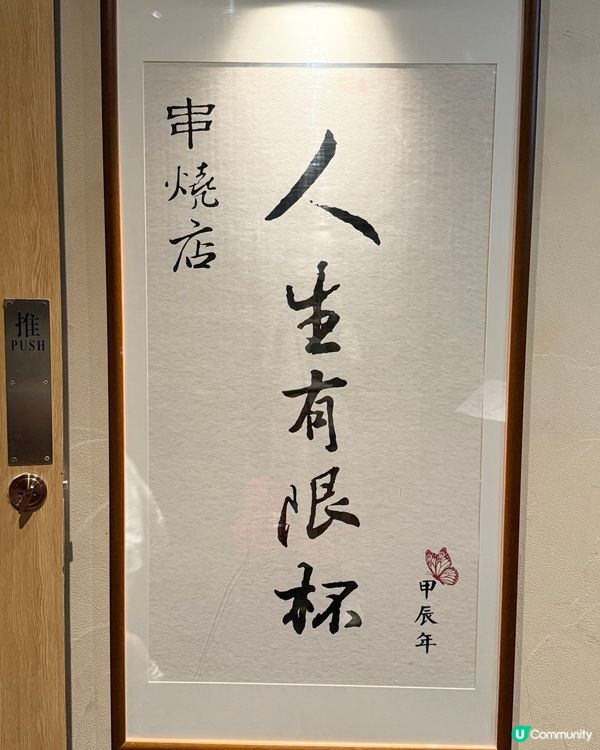 串燒店
人生有限杯
甲辰年
推
PUSH
U Community